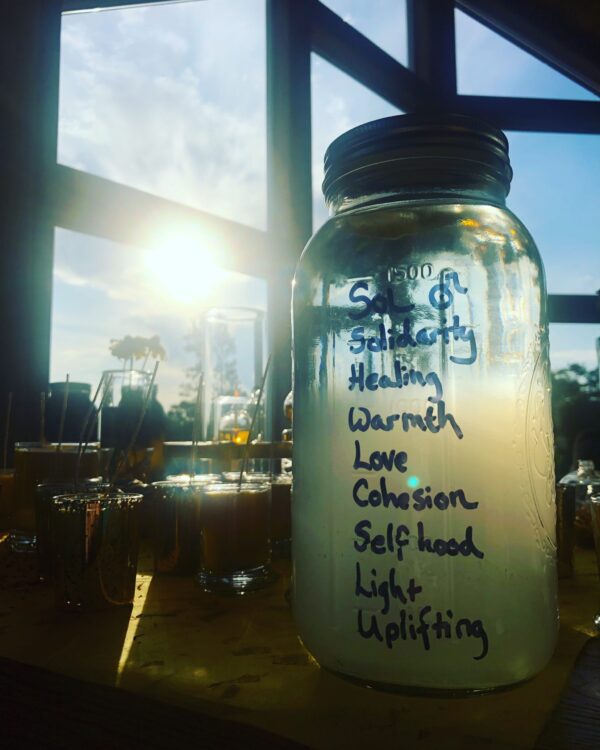 1500
Sol
Solidarity
Healing
Warmth
Love
Cohesion
Self hood
Light
Uplifting